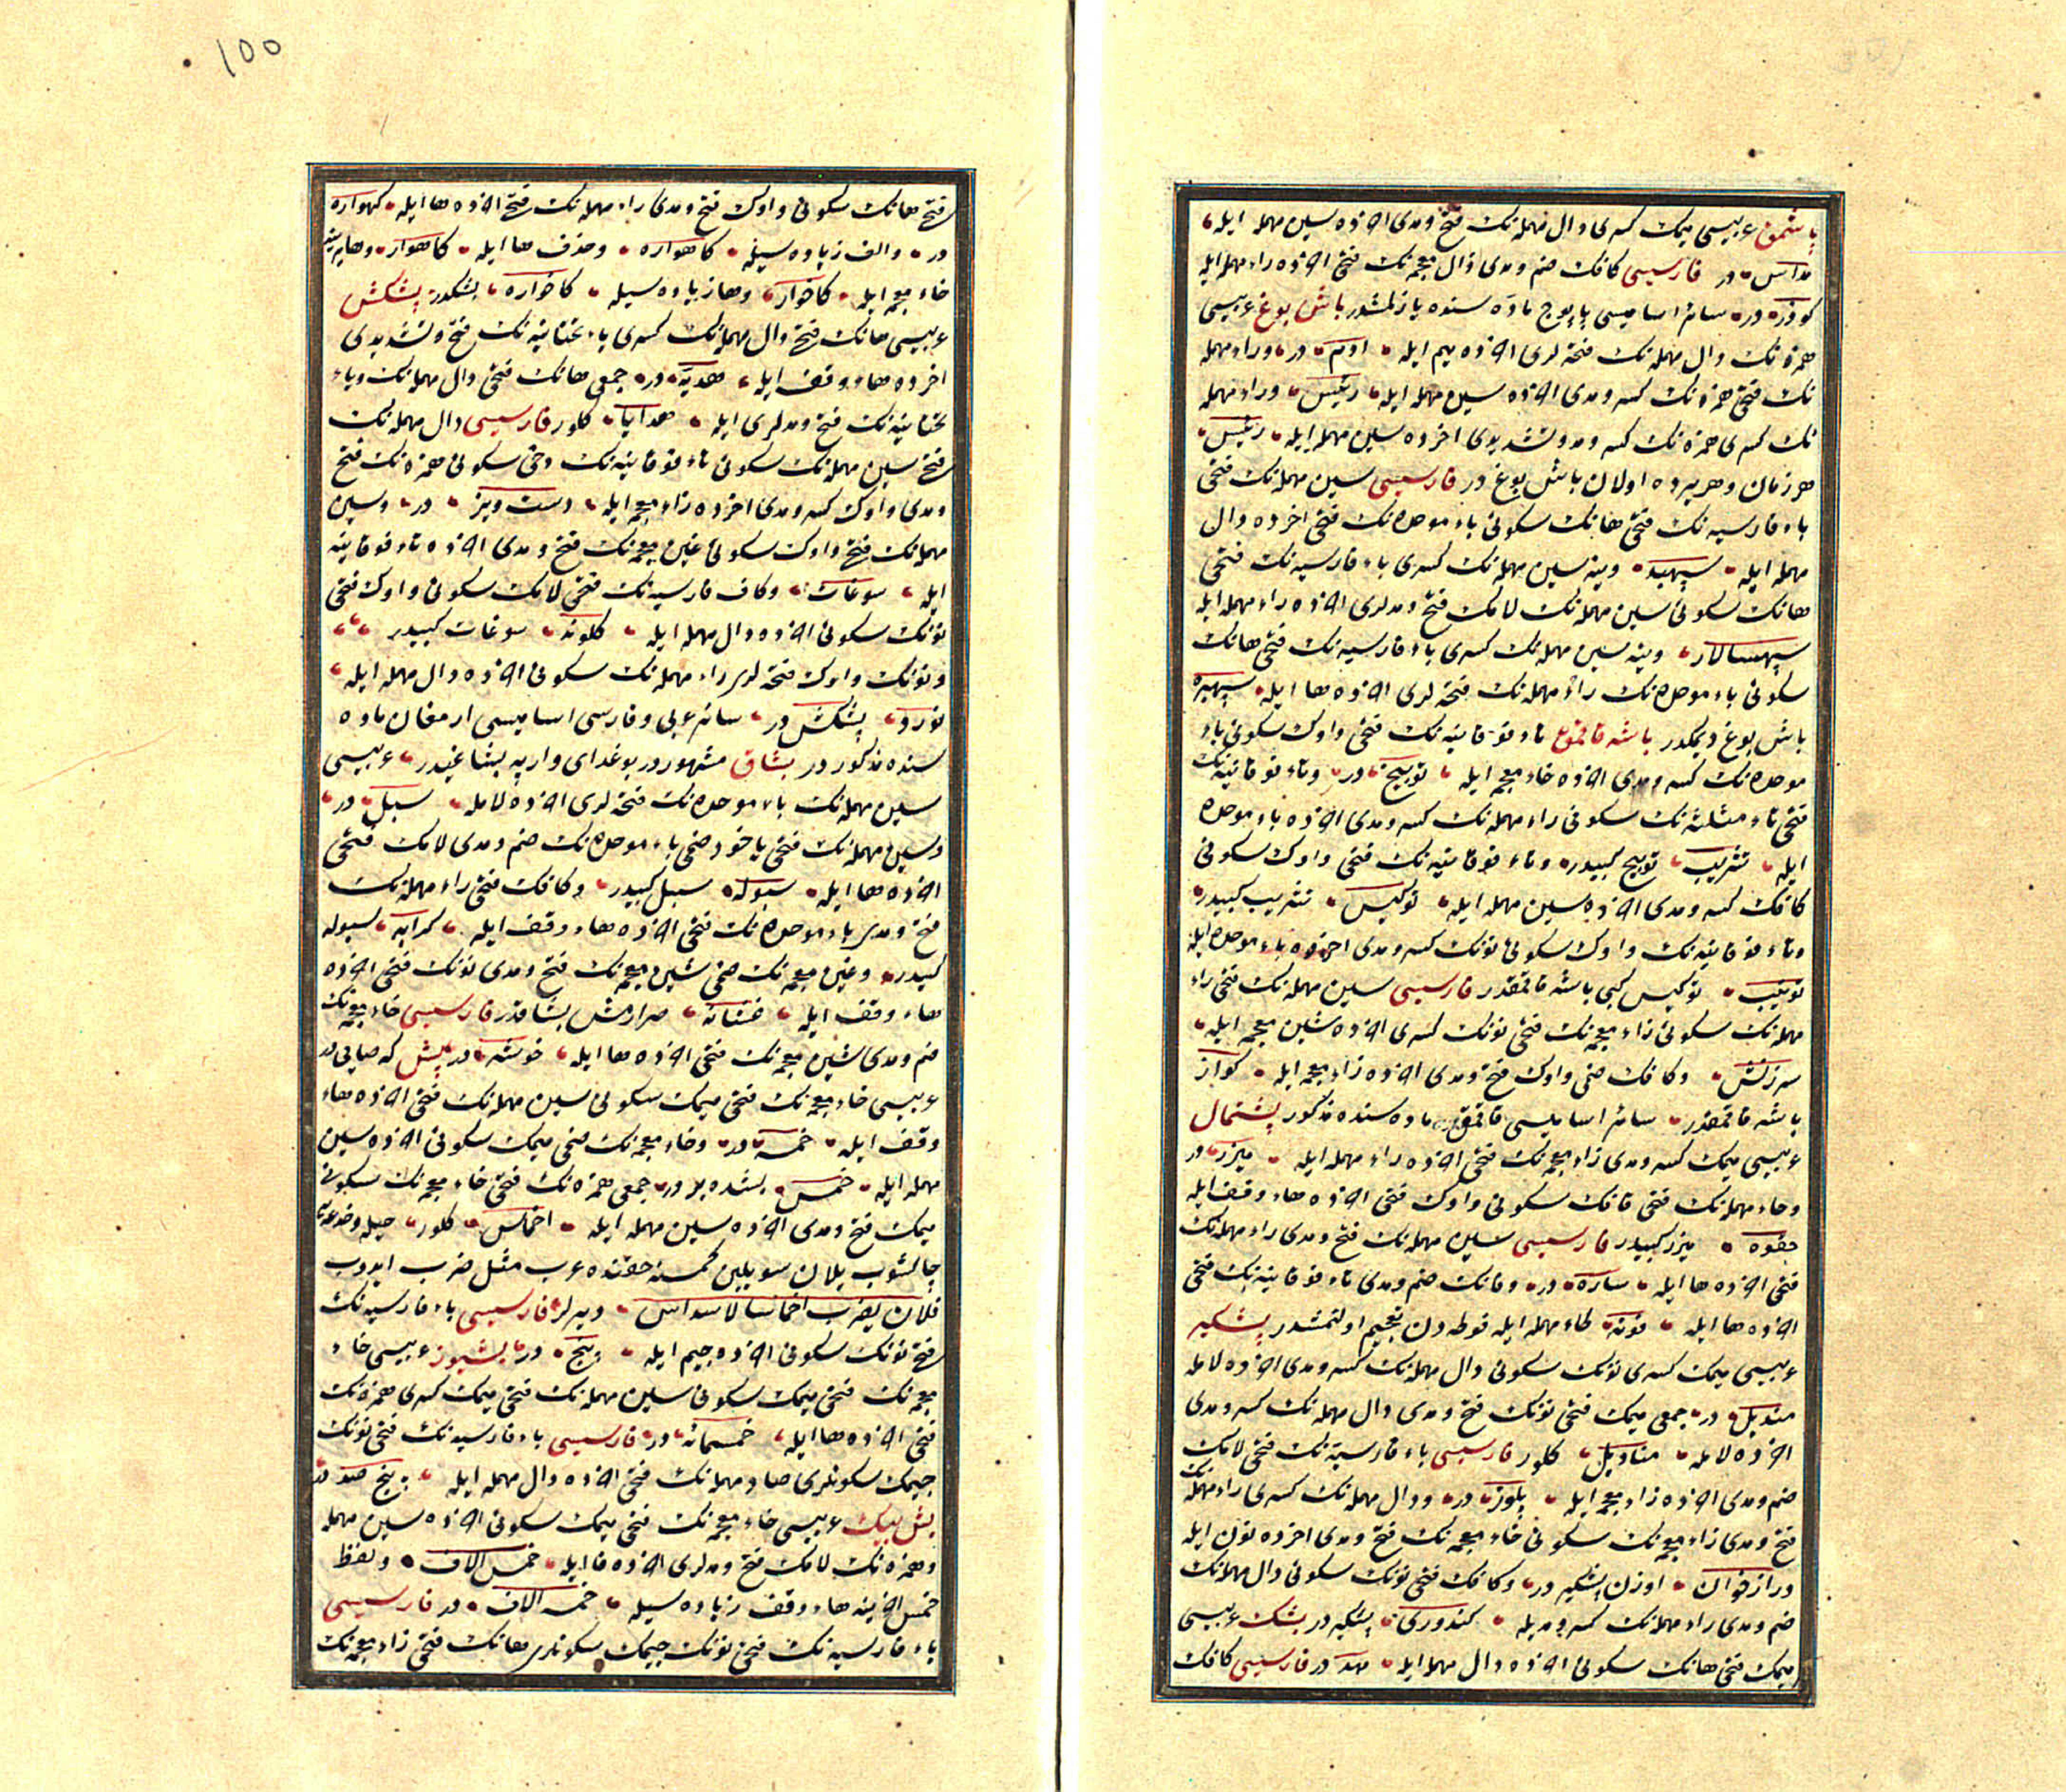 باشمق عربیسی میمك كسری دال مهمله‌نك فتح و مدی اخرده سین مهمله ایله
مداس در فارسیسی كافك ضم و مدی ذال معجمه‌نك فتحی اخرده راء مهمله ایله
كوذر در سائر اسامیسی پاپوج ماده سنده یازلمشدر باش بوغ عربیسی
همزه‌نك دال مهمله‌نك فتحه لری اخرده میم ایله ادم در وراء مهمله
نك فتحی همزه‌نك كسر و مدی اخرده سین مهمله ایله رئیس وراء مهمله
نك كسری همزه‌نك كسر و مد و تشدیدی اخرده سین مهمله ایله رئیس
هر زمان و هر یرده اولان باش بوغ در فارسیسی سین مهمله‌نك فتحی
باء فارسیه‌نك فتحی هانك سكونی باء موحده‌نك فتحی اخرده دال
مهمله ایله سپهبد وینه سین مهمله‌نك كسری باء فارسیه‌نك فتحی
هانك سكونی سین مهمله‌نك لامك فتح و مدلری اخرده راء مهمله ایله
سپهسالار وینه سین مهمله‌نك كسری باء فارسیه‌نك فتحی هانك
سكونی باء موحده‌نك راء مهمله‌نك فتحه لری اخرده ها ایله سپهبره
باش بوغ دیمكدر باشه قاقمق تاء فوقانیه‌نك فتحی واوك سكونی باء
موحده‌نك كسر و مدی اخرده خاء معجمه ایله توبیخ در وتاء فوقانیه‌نك
فتحی ثاء مثلثه‌نك سكونی راء مهمله‌نك كسر و مدی اخرده باء موحده
ایله تثریب توبیخ كبیدر وتاء فوقانیه‌نك فتحی واوك سكونی
كافك كسر و مدی اخرده سین مهمله ایله توكیس تثریب كبیدر
وتاء فوقانیه‌نك واوك سكونی نونك كسر و مدی اخرده باء موحده ایله
تونیب توكیس كبی باشه قاقمقدر فارسیسی سین مهمله‌نك فتحی راء
مهمله‌نك سكونی زاء معجمه‌نك فتحی نونك كسری اخرده شین معجمه ایله
سرزنش وكافك ضمی واوك فتح و مدی اخرده زاء معجمه ایله كواز
باشه قاقمقدر سائر اسامیسی قاقمق ماده سنده مذكور پشتمال
عربیسی میمك كسر و مدی زاء معجمه‌نك فتحی اخرده راء مهمله ایله میزر در
وحاء مهمله‌نك فتحی قافك سكونی واوك فتحی اخرده هاء وقف ایله
حقوه میزر كبیدر فارسیسی سین مهمله‌نك فتح و مدی راء مهمله‌نك
فتحی اخرده ها ایله ساره در وفانك ضم و مدی تاء فوقانیه‌نك فتحی
اخرده ها ایله فوته طاء مهمله ایله فوطه دن تعجیم اولنمشدر پشكیر
عربیسی میمك كسری نونك سكونی دال مهمله‌نك كسر و مدی اخرده لام ایله
مندیل در جمعی میمك فتحی نونك فتح و مدی دال مهمله‌نك كسر و مدی
اخرده لام ایله منادیل كلور فارسیسی باء فارسیه‌نك فتحی لامك
ضم و مدی اخرده زاء معجمه ایله پلوز در ودال مهمله‌نك كسری راء مهمله‌نك
فتح و مدی زاء معجمه‌نك سكونی خاء معجمه‌نك فتح و مدی اخرده نون ایله
درازخوان اوزن پشكیر در وكافك فتحی نونك سكونی دال مهمله‌نك
ضم و مدی راء مهمله‌نك كسر و مدیله كندوری پشكیر در بشك عربیسی
میمك فتحی هانك سكونی اخرده دال مهمله ایله مهد در فارسیسی كافك
فتح هانك سكونی واوك فتح و مدی راء مهمله‌نك فتحی اخرده ها ایله كهواره
در والف زیاده سیله كاهواره وحذف ها ایله كاهوار وهایرینه
خاء معجمه ایله كاخوار وها زیاده سیله كاخواره بشكدر پشكش
عربیسی هانك فتح دال مهمله‌نك كسری یاء تحتانیه‌نك فتح و تشدیدی
اخرده هاء وقف ایله هدیه در جمعی هانك فتحی دال مهمله‌نك ویاء
تحتانیه‌نك فتح و مدلری ایله هدایا كلور فارسیسی دال مهمله‌نك
فتح سین مهمله‌نك سكونی تاء فوقانیه‌نك دخی سكونی همزه‌نك فتح
و مدی واوك كسر و مدی اخرده زاء معجمه ایله دست ویز در وسین
مهمله‌نك فتح واوك سكونی غین معجمه‌نك فتح و مدی اخرده تاء فوقانیه
ایله سوغات وكاف فارسیه‌نك فتحی لامك سكونی واوك فتحی
نونك سكونی اخرده دال مهمله ایله كلوند سوغات كبیدر
ونونك واوك فتحه لری راء مهمله‌نك سكونی اخرده دال مهمله ایله
نورد پشكش در سائر عربی وفارسی اسامیسی ارمغان ماده
سنده مذكور در بشاق مشهور در بوغدای واریه بشاغیدر عربیسی
سین مهمله‌نك باء موحده‌نك فتحه لری اخرده لام ایله سبل در
وسین مهمله‌نك فتحی یاخود ضمی باء موحده‌نك ضم و مدی لامك فتحی
اخرده ها ایله سبوله سبل كبیدر وكافك فتحی راء مهمله‌نك
فتح و مدی باء موحده‌نك فتحی اخرده هاء وقف ایله كرابه سبوله
كبیدر وغین معجمه‌نك ضمی شین معجمه‌نك فتح و مدی نونك فتحی اخرده
هاء وقف ایله غشانه صرارمش بشاقدر فارسیسی خاء معجمه‌نك
ضم و مدی شین معجمه‌نك فتحی اخرده ها ایله خوشه در بش كه صایی در
عربیسی خاء معجمه‌نك فتحی میمك سكونی سین مهمله‌نك فتحی اخرده هاء
وقف ایله خمسه در وخاء معجمه‌نك ضمی میمك سكونی اخرده سین
مهمله ایله خمس بشده بر در جمعی همزه‌نك فتحی خاء معجمه‌نك سكونی
میمك فتح و مدی اخرده سین مهمله ایله اخماس كلور حیله وخدعه
چالشوب یلان سویلین كمسنه حقنده عرب مثل ضرب ایدوب
فلان یضرب اخماسا لاسداس دیرلر فارسیسی باء فارسیه‌نك
فتح نونك سكونی اخرده جیم ایله پنج در بشیوز عربیسی خاء
معجمه‌نك فتحی میمك سكونی سین مهمله‌نك فتحی میمك كسری همزه‌نك
فتحی اخرده ها ایله خمسمائه در فارسیسی باء فارسیه‌نك فتحی نونك
جیمك سكونلری صاد مهمله‌نك فتحی اخرده دال مهمله ایله پنج صد در
بش بیك عربیسی خاء معجمه‌نك فتحی میمك سكونی اخرده سین مهمله
وهمزه‌نك لامك فتح و مدلری اخرده فا ایله خمس الاف ولفظ
خمس اخرینه هاء وقف زیاده سیله خمسه الاف در فارسیسی
باء فارسیه‌نك فتحی نونك جیمك سكونلری هانك فتحی زاء معجمه‌نك